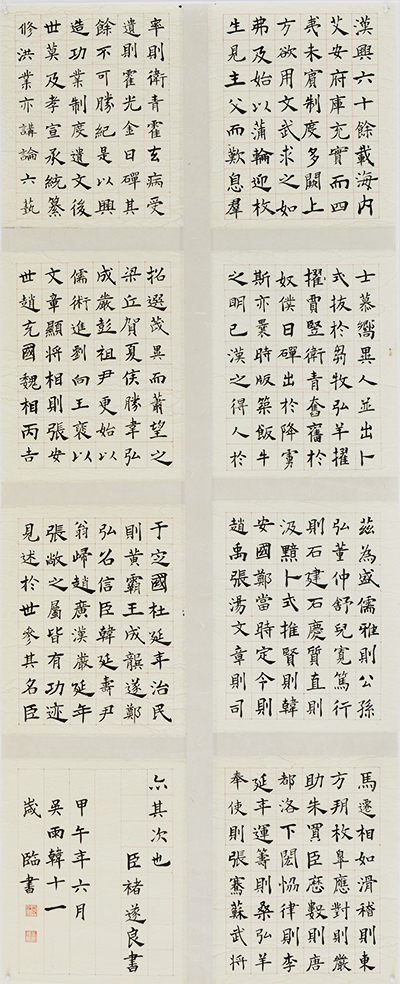 漢興六十餘載海內
艾安府庫充實而四
夷未賓制度多闕上
方欲用文武求之如
弗及始以蒲輪迎枚
生見主父而歎息羣
士慕嚮異人並出卜
式拔於芻牧弘羊擢
擢賈豎衛青奮舊於
奴僕日磾出於降虜
斯亦曩時版築飯牛
之明已漢之得人於
茲為盛儒雅則公孫
弘董仲舒兒寬篤行
則石建石慶質直則
汲黯卜式推賢則韓
安國鄭當時定令則
趙禹張湯文章則司
馬遷相如滑稽則東
方朔枚皋應對則嚴
助朱買臣曆數則唐
都洛下閎恊律則李
延年運籌則桑弘羊
奉使則張騫蘇武將
率則衛青霍去病受
遺則霍光金日磾其
餘不可勝紀是以興
造功業制度遺文後
世莫及孝宣承統纂
修洪業亦講論六藝
招選茂異而蕭望之
梁丘賀夏侯勝韋弘
成嚴彭祖尹更始以
儒術進劉向王褒以
文章顯將相則張安
世趙充國魏相丙吉
于定國杜延年治民
則黃霸王成龔遂鄭
弘召信臣韓延壽尹
翁歸趙廣漢嚴延年
張敞之屬皆有功迹
見述於世參其名臣
亦其次也
臣褚遂良書
甲午年六月
吳雨韓十一
歲臨書